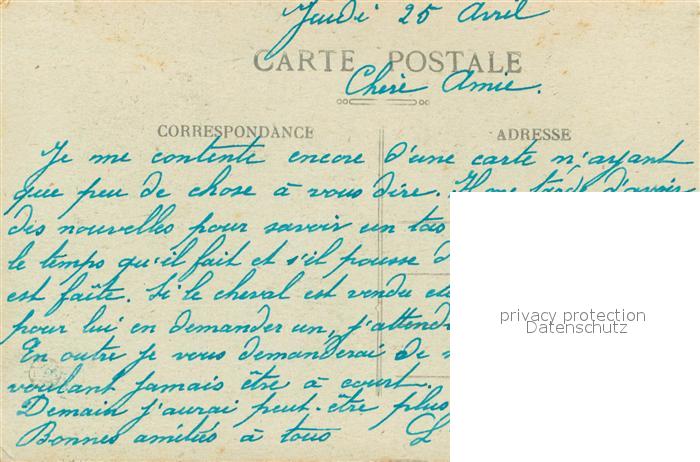 Jeudi 25 Avril
CARTE POSTALE
Chère Amie.
CORRESPONDANCE
ADRESSE
Je me contente encore d'une carte n'ayant
que peu de chose à vous dire. Il me tarde d'avoir
des nouvelles pour savoir un tas
le temps qu'il fait et s'il pousse d
est faîte. Si le cheval est vendu
pour lui en demander un, j'attend
En outre je vous demanderai de
voulant jamais être à court.
Demain j'aurai peut-être plus
Bonnes amitiés à tous L
privacy protection
Datenschutz